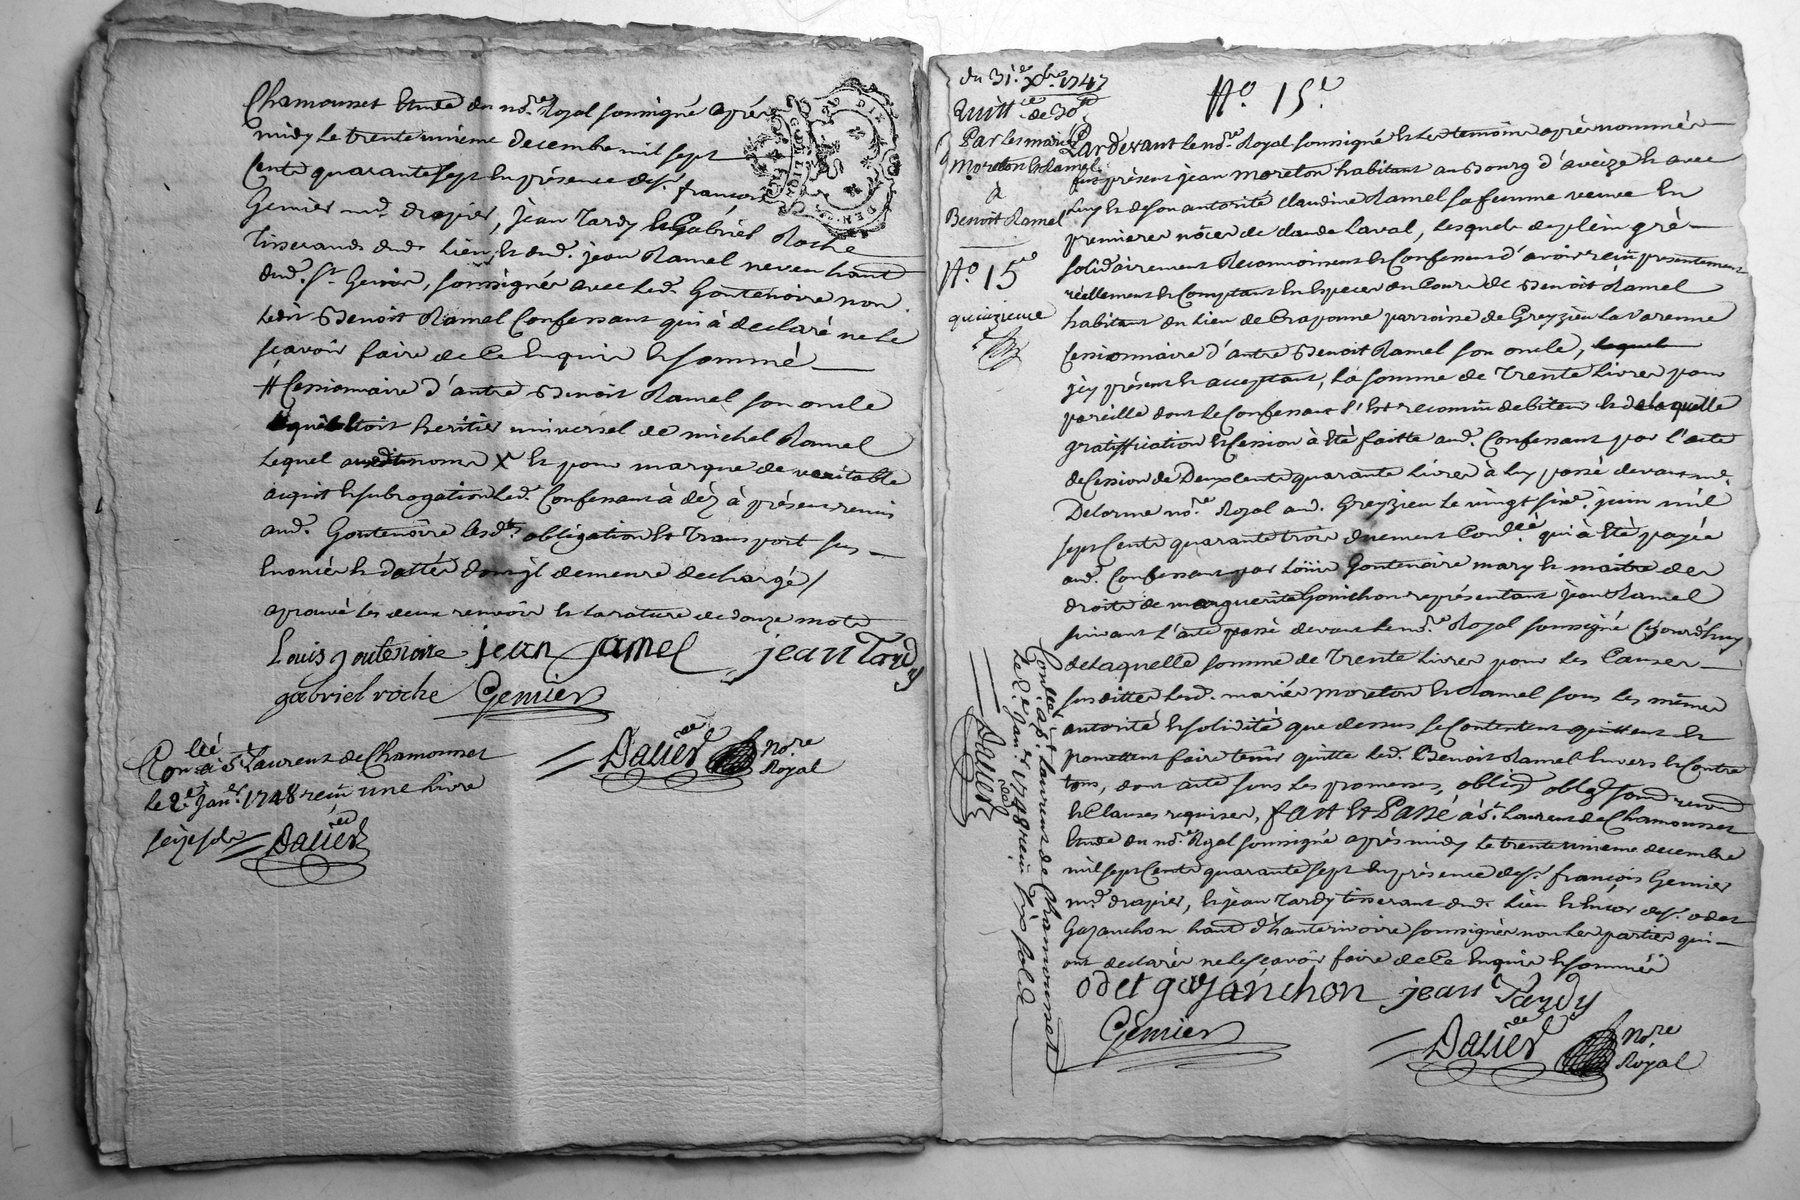 Chamousset Etude du no.re Royal soussigné après
midy le trente unieme decembre mil sept
Cents quarante sept En présence de s.r françois
Genier m.d drapier, jean Tardy & Gabriel Roche
Tisserands dud. Lieu, & dud. jean Ramel neveu hant
dud. S.t Genis, soussignés avec led. Gontenoire non
ledit Benoit Ramel Confessant qui à declaré ne le
sçavoir faire de Ce Enquis & sommé
# Cessionnaire d'autre Benoit Ramel son oncle
Etoit heritier universel de michel Ramel
Lequel X & pour marque de veritable
acquit & subrogation led. Confessant à déz à présent remis
aud. Gontenoire lesd.es obligation & Transport sus
Enoncés & dattés dont jl demeure dechargé /
aprouvé les deux renvois & la rature de douze mots
Louis gontenoire jean ramel jean Tardy
gabriel roche Genier
Dalier no.re Royal
Con.llé à S.t Laurent de Chamousset
le 2.e Jan.er 1748 reçu une livre
seize sols Dalier
du 31.e Xbre 1747
Quitt.ce de 30.tt
Par les mariés
Moreton & Ramel
à
Benoit Ramel
N.o 15.e
quinzieme
N.o 15.e
Pardevant le no.re Royal soussigné & les temoins après nommés
fut présent jean moreton habitant au Bourg d'aveize & avec
Luy & de son autorité claudine Ramel sa femme veuve En
premieres nôces de claude Laval, lesquels de plein gré
solidairement Reconnoissent & Confessent d'avoir reçu présentement
réellement & Comptant En Especes du Cours de Benoit Ramel
habitant du Lieu de Craponne parroisse de Greyzieu La Varenne
Cessionnaire d'autre Benoit Ramel son oncle, lequel
jcy présent & acceptant, la somme de Trente Livres pour
pareille dont le Confessant s'Est reconnu debiteur & de laquelle
gratiffication & Cession à Eté faitte aud. Confessant par l'acte
de Cession de Deux Cents quarante Livres à luy passé devant m.e
Delorme no.re Royal aud. Greyzieu le vingt six.e juin mil
sept Cents quarante trois duement Con.llé qui à Eté payée
aud. Confessant par Loüis Gontenoire mary & maitre des
droits de marguerite Gonichon représentant jean Ramel
suivant l'acte passé devant le no.re Royal soussigné Cejourd'huy
de Laquelle somme de Trente Livres pour les Causes
susdittes lesd. mariés moreton & Ramel sous les mêmes
autorité & solidité que dessus se Contentent quittent &
promettent faire tenir quitte led. Benoit Ramel Envers & Contre
tous, dont acte sous les promesses, oblig.s
& Clauses requises, fait & Passé à S.t Laurent de Chamousset
Etude du no.re Royal soussigné après midy le trente unieme decembre
mil sept Cents quarante sept En présence de s.r françois Genier
m.d drapier, & jean Tardy tisserant dud. Lieu & Encor de s.r odet
Gazanchon hant d'hauterivoire soussignés non les parties qui
ont declarés ne le sçavoir faire de Ce Enquis & sommés
odet gazanchon jean Tardy
Genier
Dalier no.re Royal
Con.llé à S.t Laurent de Chamousset
Le 2.e Jan.er 1748 reçu six sols
Dalier